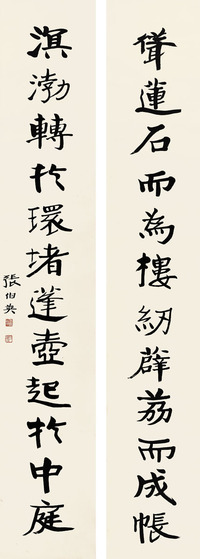 聳蓮石而為樓紉薜荔而成帳
溟渤轉於環堵蓬壺起於中庭
張伯英